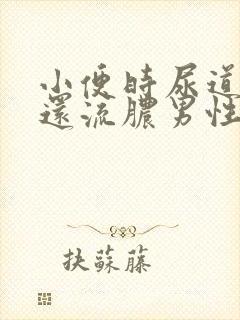 小便時尿道
還流膿男性
抉蘇藤